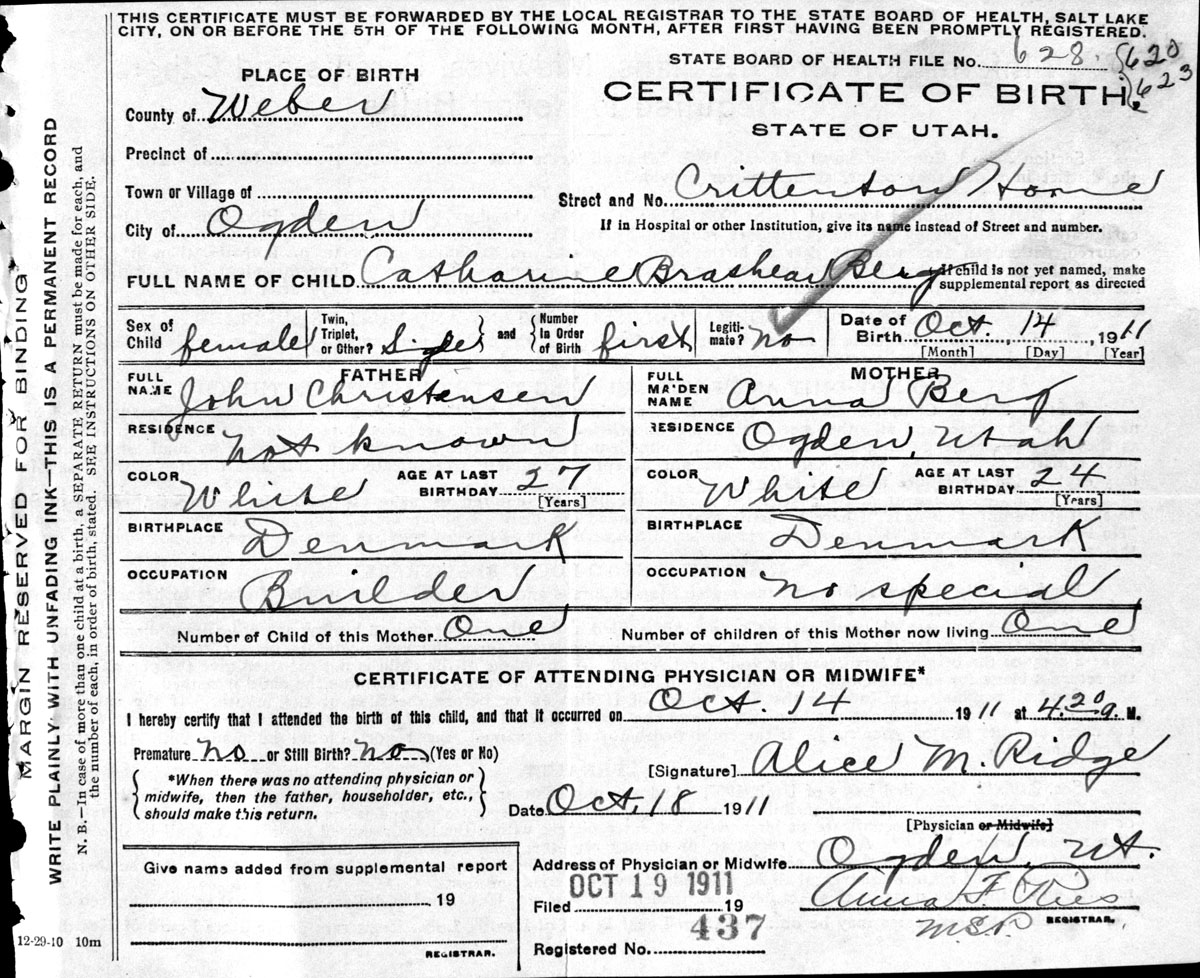 THIS CERTIFICATE MUST BE FORWARDED BY THE LOCAL REGISTRAR TO THE STATE BOARD OF HEALTH, SALT LAKE
CITY, ON OR BEFORE THE 5TH OF THE FOLLOWING MONTH, AFTER FIRST HAVING BEEN PROMPTLY REGISTERED.
STATE BOARD OF HEALTH FILE No. 628. 620
623
PLACE OF BIRTH
CERTIFICATE OF BIRTH.
County of Weber
STATE OF UTAH.
Precinct of
Town or Village of
Street and No. Crittenton Home
City of Ogden
If in Hospital or other Institution, give its name instead of Street and number.
FULL NAME OF CHILD Catharine Brashear Berg
If child is not yet named, make
supplemental report as directed
Sex of Child female
Twin, Triplet, or Other? Single and Number In Order of Birth first
Legitimate? no
Date of Birth Oct. 14, 1911
[Month] [Day] [Year]
FATHER
FULL NAME John Christensen
RESIDENCE Not known
COLOR White AGE AT LAST BIRTHDAY 27
[Years]
BIRTHPLACE Denmark
OCCUPATION Builder
MOTHER
FULL MAIDEN NAME Anna Berg
RESIDENCE Ogden, Utah
COLOR White AGE AT LAST BIRTHDAY 24
[Years]
BIRTHPLACE Denmark
OCCUPATION No special
Number of Child of this Mother One
Number of children of this Mother now living One
CERTIFICATE OF ATTENDING PHYSICIAN OR MIDWIFE*
I hereby certify that I attended the birth of this child, and that it occurred on Oct. 14 1911 at 4.20 a. M.
Premature no or Still Birth? no (Yes or No)
*When there was no attending physician or
midwife, then the father, householder, etc.,
should make this return.
[Signature] Alice M. Ridge
Date Oct. 18 1911
[Physician or Midwife]
Give name added from supplemental report
19
REGISTRAR.
Address of Physician or Midwife Ogden, Ut.
OCT 19 1911
Filed 19
Anna F.
REGISTRAR.
437
Registered No.
12-29-10 10m
MARGIN RESERVED FOR BINDING
WRITE PLAINLY WITH UNFADING INK—THIS IS A PERMANENT RECORD
N. B.—In case of more than one child at a birth, a SEPARATE RETURN must be made for each, and
the number of each, in order of birth, stated. SEE INSTRUCTIONS ON OTHER SIDE.